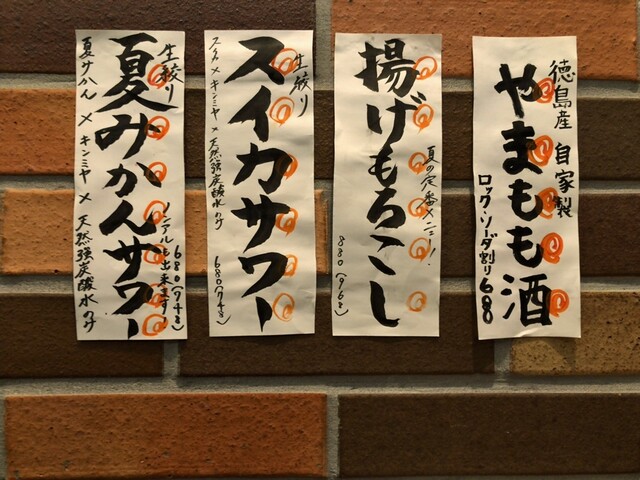 徳島産 自家製
やまもも酒
ロック・ソーダ割り 688
揚げもろこし
夏の定番メニュー!
880(968)
生絞り
スイカサワー
スイカ × キンミヤ × 天然強炭酸水のみ
680(748)
生絞り
夏みかんサワー
ノンアルも出来ます
680(748)
夏みかん × キンミヤ × 天然強炭酸水のみ